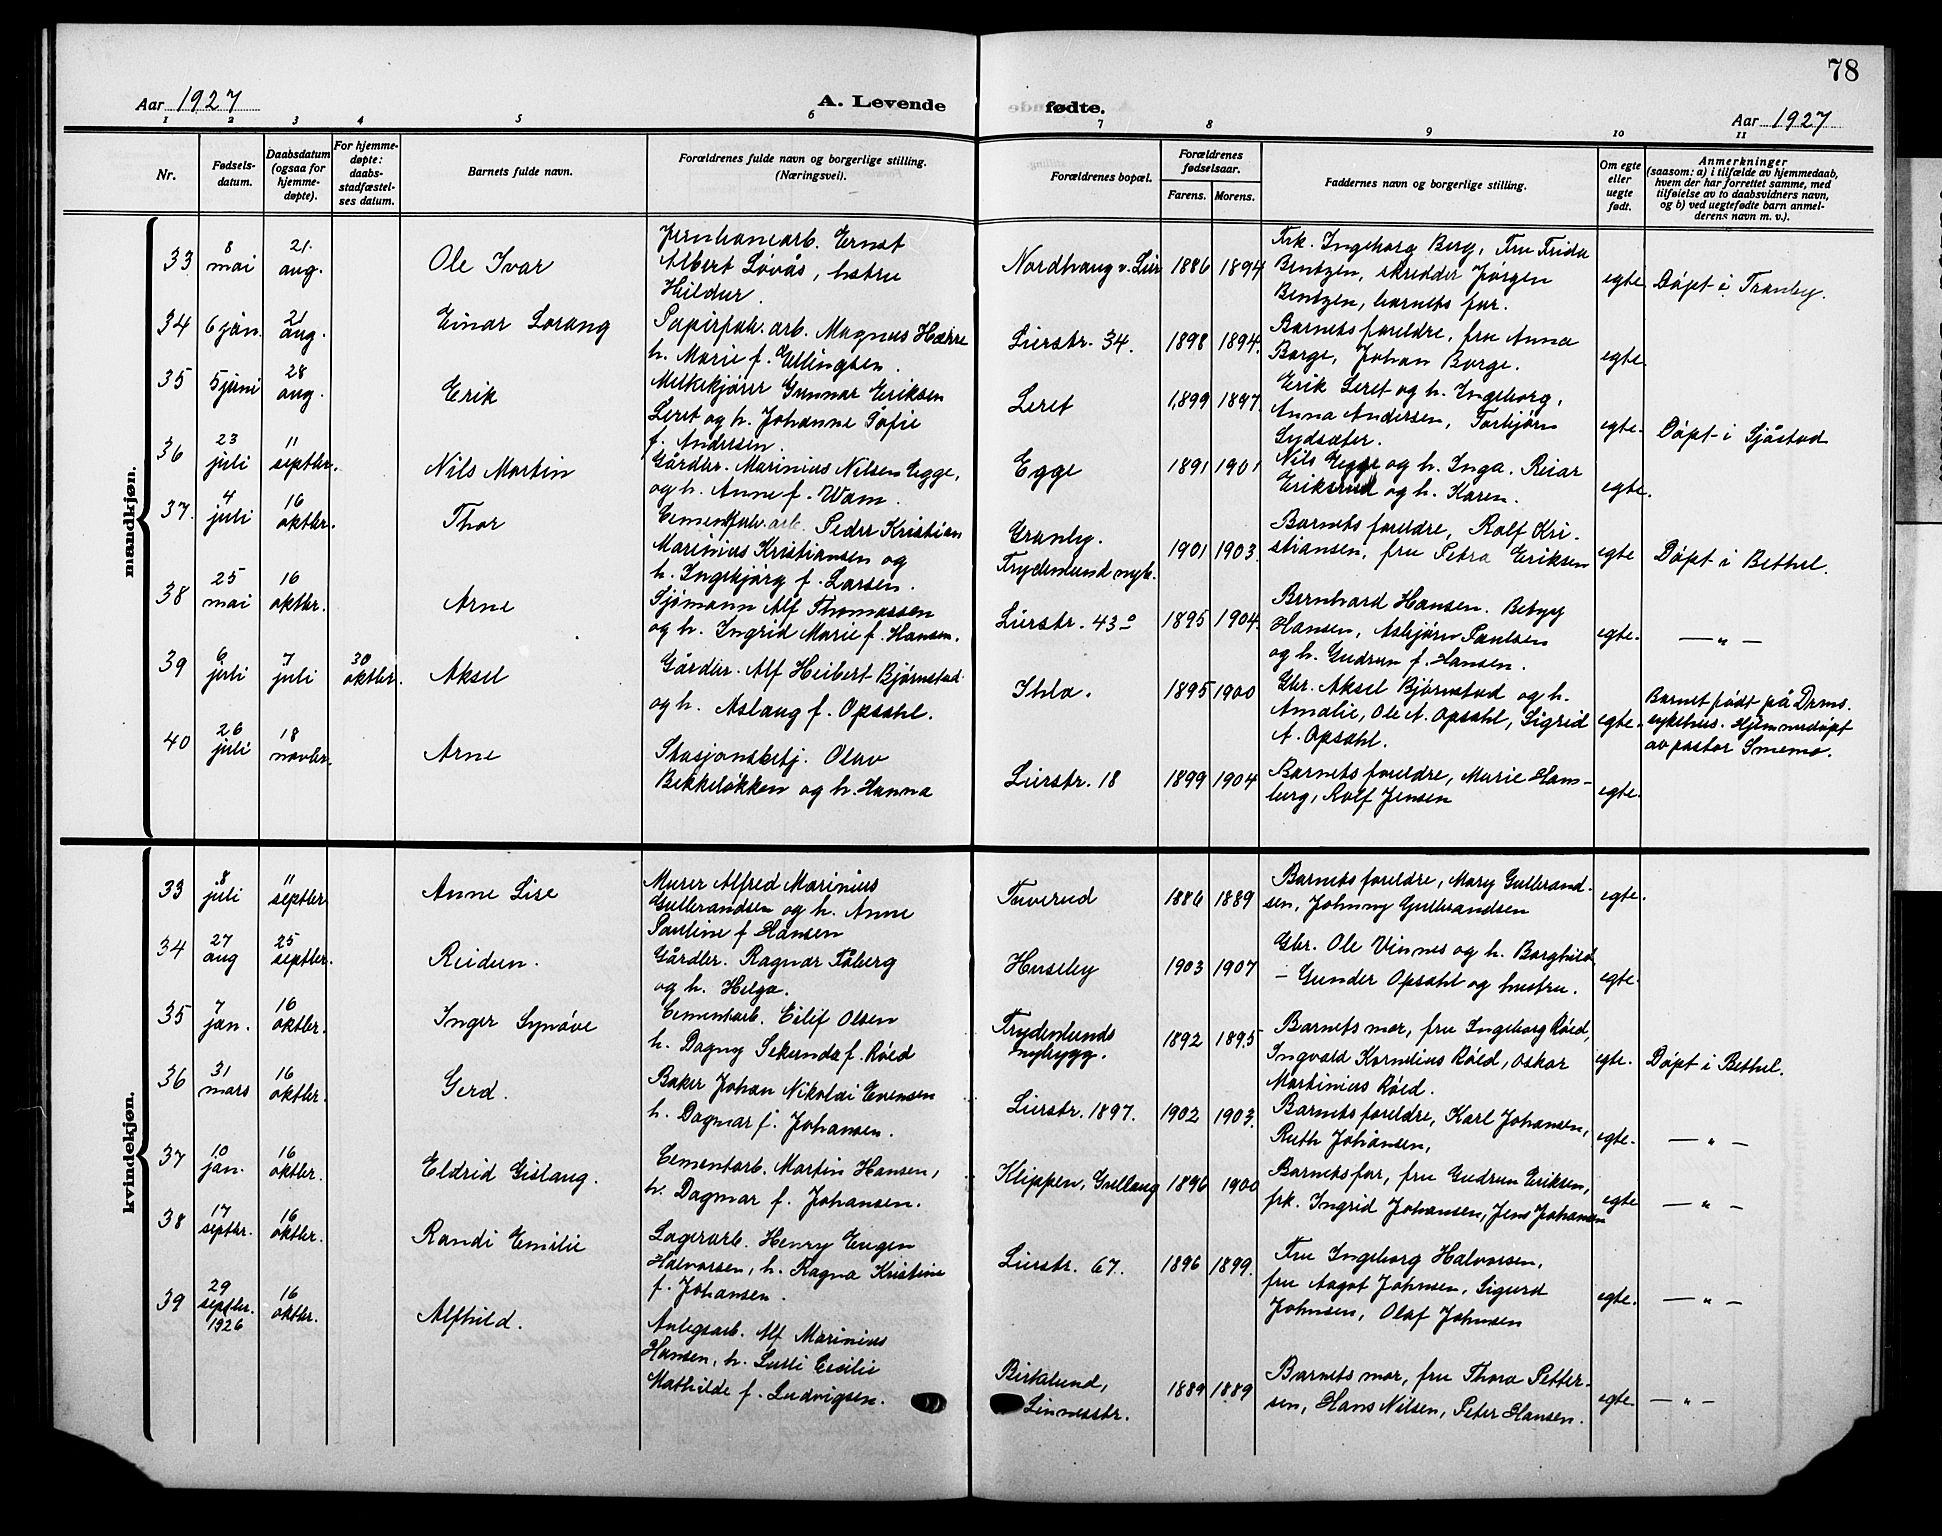 78
Aar 1927
A. Levende fødte.
Aar 1927
1 2 3 4 5 6 7 8 9 10 11
Nr.
Fødsels-
datum.
Daabsdatum
(ogsaa for
hjemme-
døpte).
For hjemme-
døpte:
daabs-
stadfæstel-
ses datum.
Barnets fulde navn.
Forældrenes fulde navn og borgerlige stilling.
(Næringsvei).
Forældrenes bopæl.
Forældrenes
fødselsaar.
Farens. Morens.
Faddernes navn og borgerlige stilling.
Om egte
eller
uegte
født.
Anmerkninger
(saasom: a) i tilfælde av hjemmedaab,
hvem der har forrettet samme, med
tilføielse av to daabsvidners navn,
og b) ved uegtefødte barn anmel-
derens navn m. v.).
mandkjøn.
33
8
mai
21.
aug.
Ole Ivar
Jernbanearb. Ernst
Albert Løvås, hstru
Hildur.
Nordhaug v. Lier
1886 1894
Frk. Ingeborg Berg, Fru Frida
Bentzen, skredder Jørgen
Bentzen, barnets far.
egte
Døpt i Tranby.
34
6 jan.
21
aug.
Einar Lorang
Papirfab. arb. Magnus Hærre
h. Marie f. Ellingsen.
Lierstr. 34.
1898 1894.
Barnets foreldre, fru Anna
Borge, Johan Borge.
egte.
35
5 juni
28
aug.
Erik
Melkekjører Gunnar Eriksen
Leret og h. Johanne Sofie
f. Andersen.
Leret
1899 1897.
Erik Leret og h. Ingeborg,
Anna Andersen, Torbjørn
Lydsæter.
egte.
Døpt i Sjåstad
36
23
juli
11
septbr.
Nils Martin
Gårdbr. Marinius Nilsen Egge,
og h. Anne f. Wam.
Egge
1891 1901
Nils Egge og h. Inga. Reiar
Eriksrud og h. Karen.
egte.
37.
4
juli
16
oktbr.
Thor
Cementfab. arb. Peder Kristian
Marinius Kristiansen og
h. Ingebjørg f. Larsen.
Granby.
Frydenlund nyb.
1901 1903.
Barnets foreldre, Rolf Kri-
stiansen, fru Petra Eriksen
egte
Døpt i Bethel.
38
25
mai
16
oktbr.
Arne
Sjømann Alf Thomassen
og h. Ingrid Marie f. Hansen.
Lierstr. 43
1895 1904.
Bernhard Hansen. Betzy
Hansen, Asbjørn Paulsen
og h. Gudrun f. Hansen.
egte.
— " —
39
6
juli
7
juli
30
oktbr.
Aksel
Gårdbr. Alf Heibert Bjørnstad
og h. Aslaug f. Opsahl.
Ihla.
1895 1900
Gbr. Aksel Bjørnstad og h.
Amalie, Ole A. Opsahl, Sigrid
A. Opsahl.
egte.
Barnet født på Drms.
sykehus. Hjemmedøpt
av pastor Smemo.
40
26
juli
18
novbr.
Arne
Stasjonsbetj. Olav
Bekkeløkken og h. Hanna
Lierstr. 18
1899 1904
Barnets foreldre, Marie Ham-
borg, Rolf Jensen
egte.
kvindekjøn.
33
8
juli
11
septbr
Anne Lise
Murer Alfred Marinius
Gulbrandsen og h. Anne
Pauline f Hansen
Tuverud
1886 1889
Barnets foreldre, Mary Gulbrand-
sen, Johnny Gulbrandsen
egte.
34
27
aug
25
septbr.
Reidun.
Gårdbr. Ragnar Foberg
og h. Helga.
Huseby
1903 1907
Gbr. Ole Vinnes og h. Borghild
– Gunder Opsahl og hustru.
egte.
35
7
jan.
16
oktbr.
Inger Synøve
Cementarb. Eilif Olsen
h. Dagny Sekunda f. Røed
Frydenlunds
nybygg.
1892 1895
Barnets mor, fru Ingeborg Røed,
Ingvald Kornelius Røed, Oskar
Martinius Røed.
egte.
Døpt i Bethel.
36
31
mars
16
oktbr.
Gerd.
Baker Johan Nikolai Evensen
h. Dagmar f. Johansen.
Lierstr. 1897.
1902 1903.
Barnets foreldre, Karl Johansen,
Ruth Johansen,
egte.
— " —
37
10
jan.
16
oktbr.
Eldrid Gislaug.
Cementarb. Martin Hansen,
h. Dagmar f. Johansen.
Klippen, Gullaug
1896 1900
Barnets far, fru Gudrun Eriksen,
frk. Ingrid Johansen, Jens Johansen
egte
— " —
38
17
septbr.
16
oktbr.
Randi Emilie
Lagerarb. Henry Eugen
Halvorsen, h. Ragna Kristine
f. Johansen.
Lierstr. 67.
1896 1899.
Fru Ingeborg Halvorsen,
fru Aagot Johnsen, Sigurd
Johnsen, Olaf Johnsen
egte.
— " —
39
29
septbr.
1926
16
oktbr.
Alfhild.
Anlegsarb. Alf Marinius
Hansen, h. Lulli Cecilie
Mathilde f. Ludvigsen.
Birkelund,
Linnesstr.
1889 1889
Barnets mor, fru Thora Petter-
sen, Hans Nilsen, Peter Hansen.
egte.
— " —